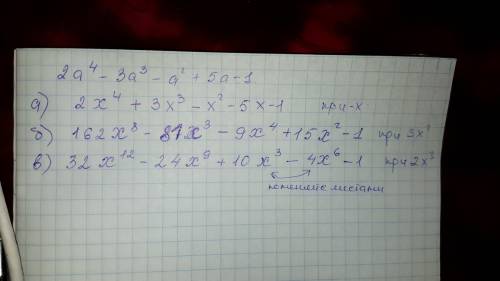 2a⁴ - 3a³ - a² + 5a - 1
а) 2x⁴ + 3x³ - x² - 5x - 1 при -x
б) 162x⁸ - 81x³ - 9x⁴ + 15x² - 1 при 3x²
в) 32x¹² - 24x⁹ + 10x³ - 4x⁶ - 1 при 2x³
поменяйте местами